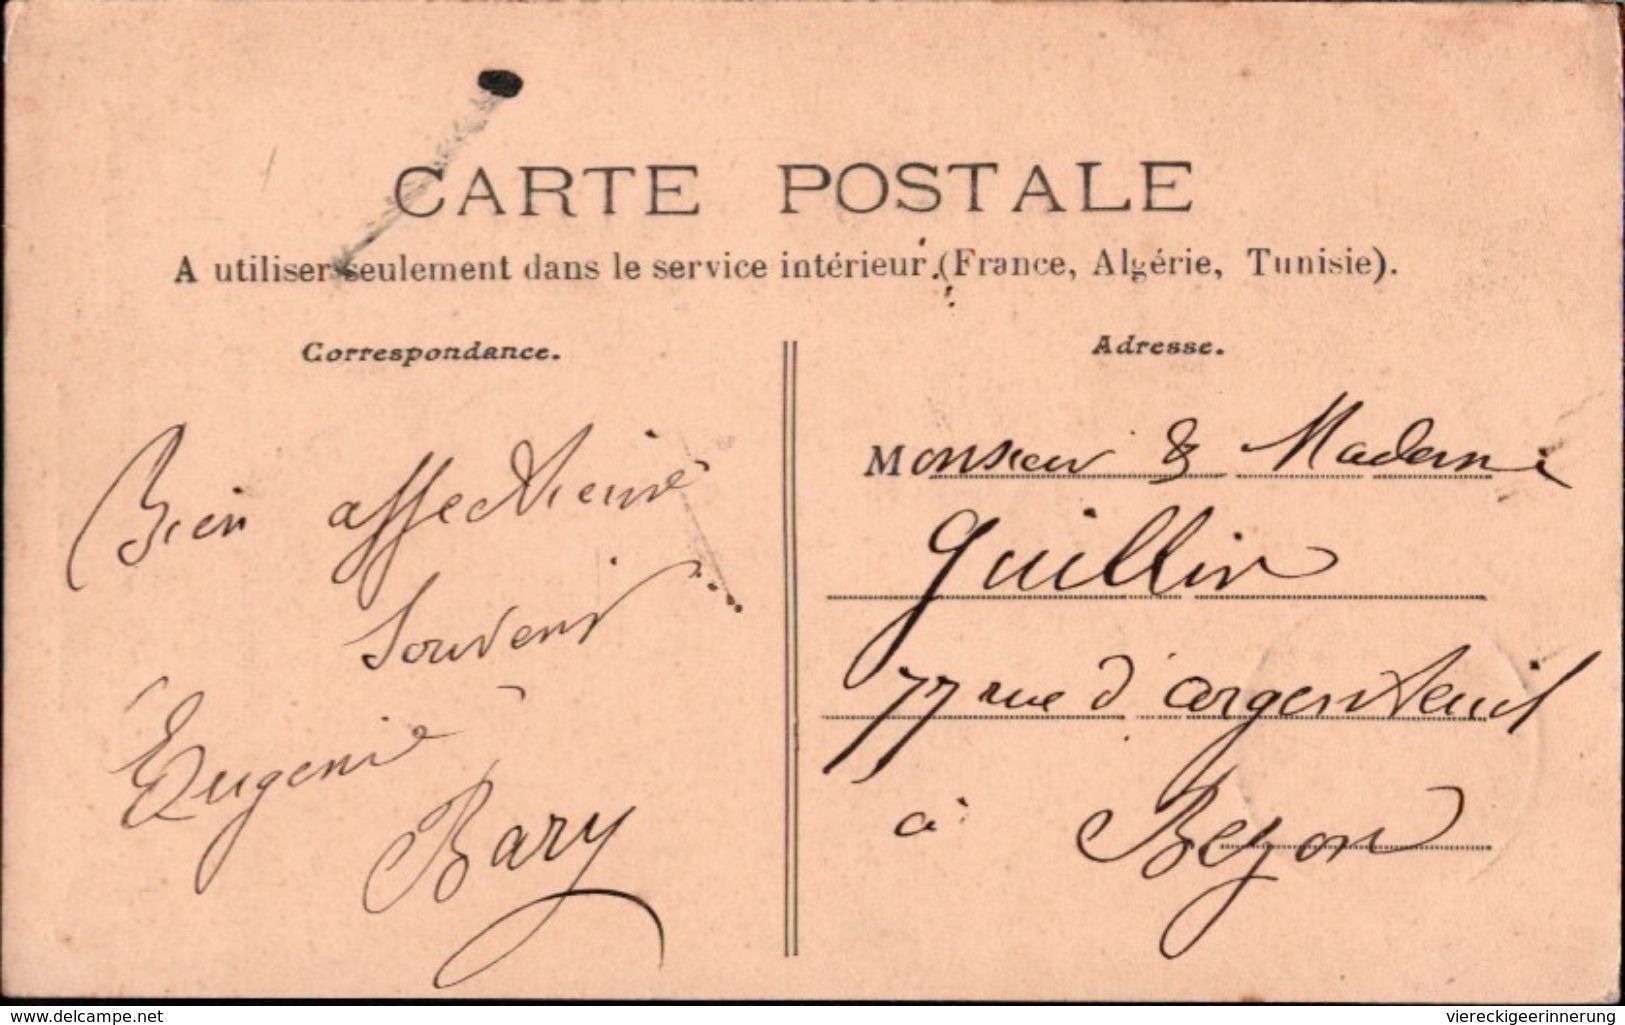 CARTE POSTALE
A utiliser seulement dans le service intérieur (France, Algérie, Tunisie).
Correspondance.
Bien affectieuse
Souvenir
Eugenie
Bary
Adresse.
Monsieur & Madame
Guillin
77 rue d'argenteuil
à Bezon
www.delcampe.net
viereckigeerinnerung